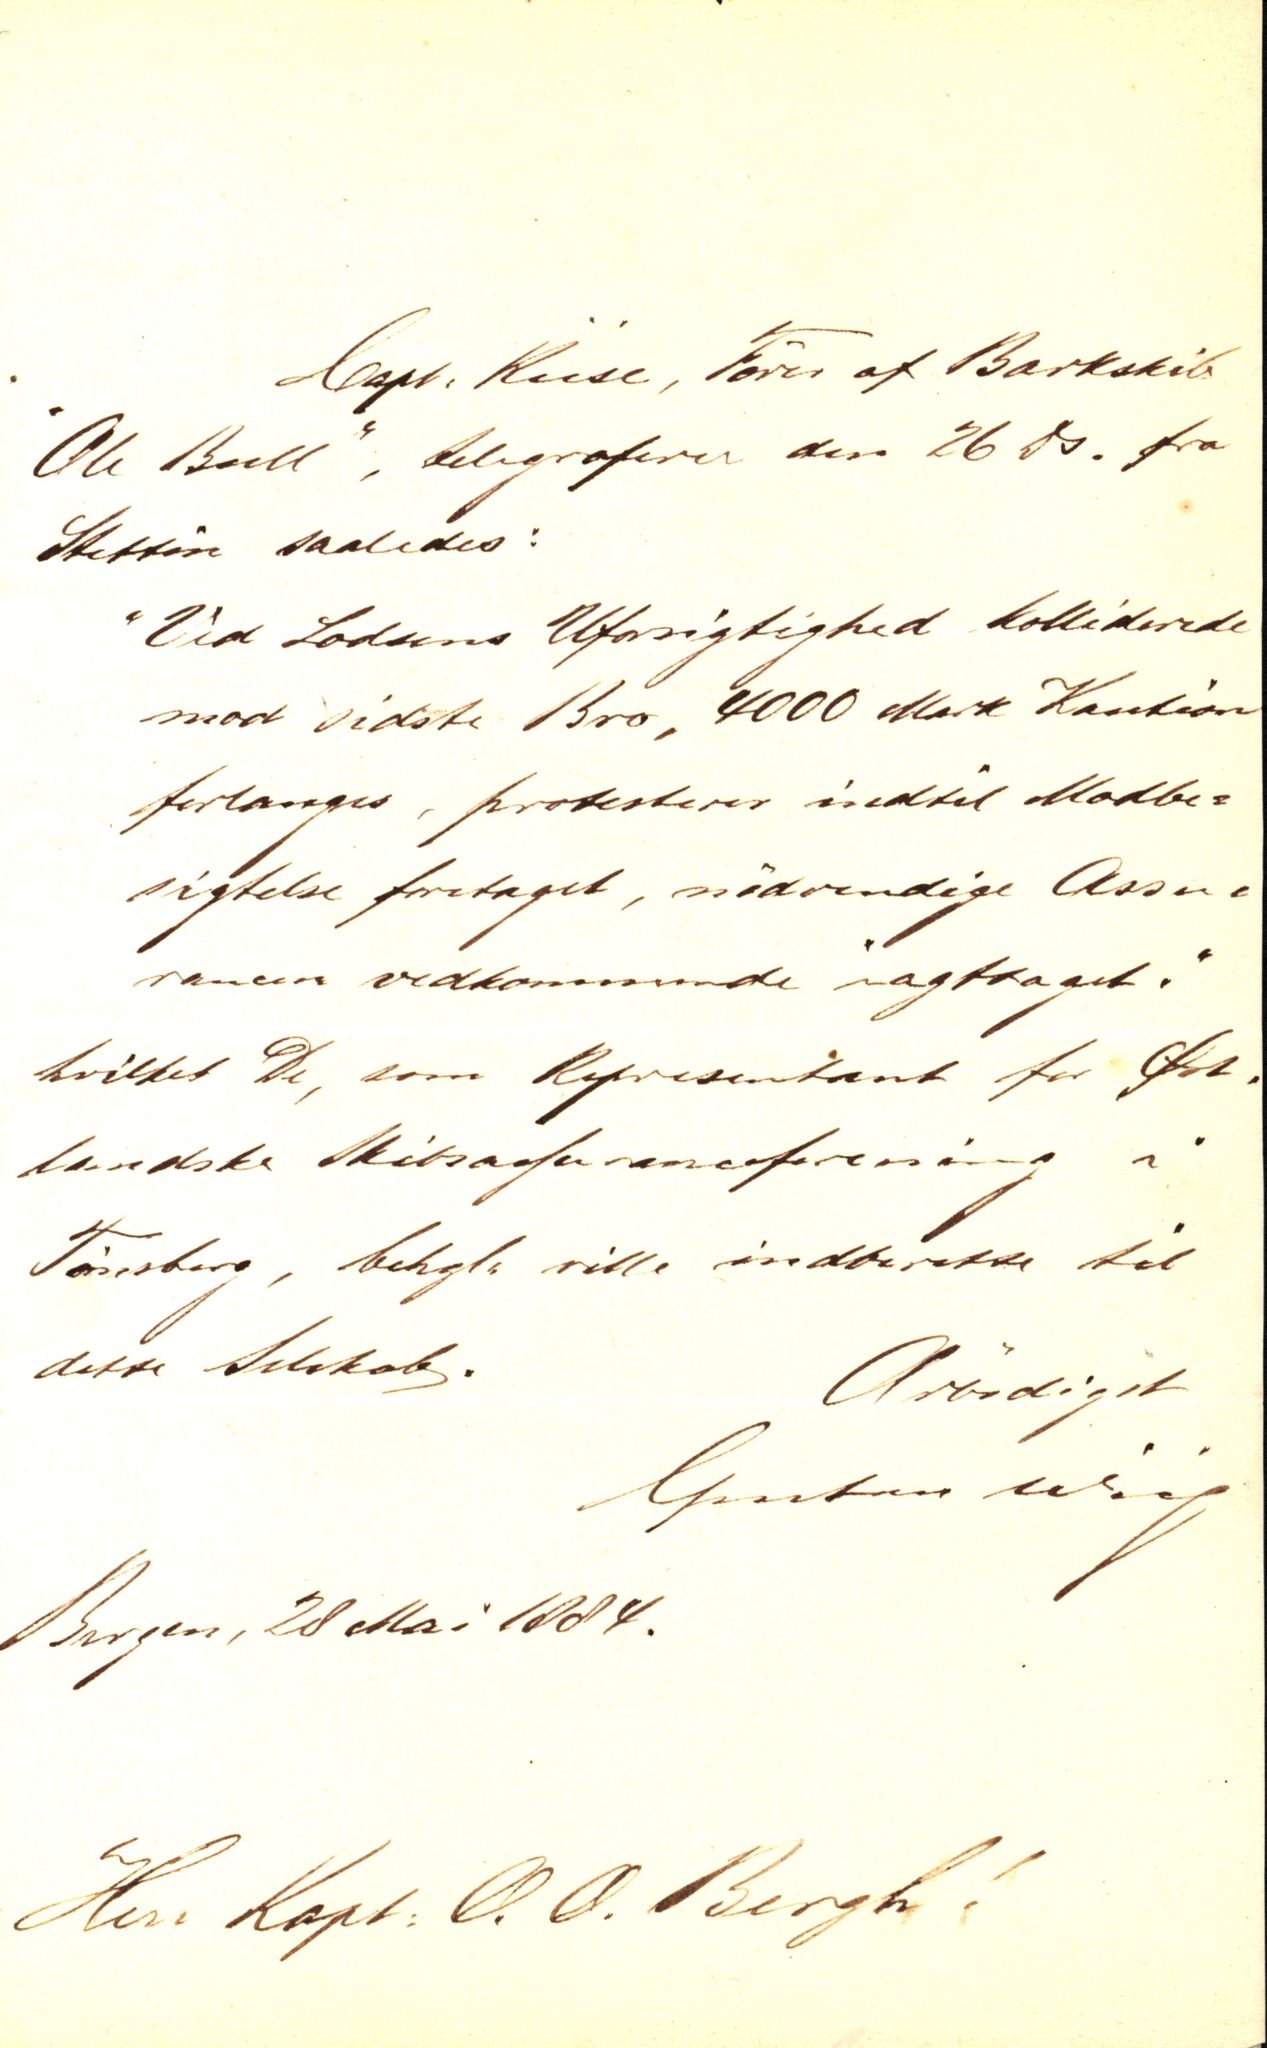 Capt. Kiise, Förer af Barkskib
"Ole Bull", telegraferer den 26 ds. fra
Stettin saaledes:
"Ved Lodsens Uforsigtighed kolliderede
mod sidste Bro, 4000 Mark Kaution
forlanges, protesterer indtil Modbe=
sigtelse foretaget, nödvendige Assu=
rancen vedkommende iagttaget."
hvilket De, som Representant for Øst=
landske Skibsassuranceforening i
Tönsberg, behgl. ville indberette til
dette Selskab.
Ärbödigst
Bergen, 28 Mai 1884.
Herr Kapt. O. O. Bergh!